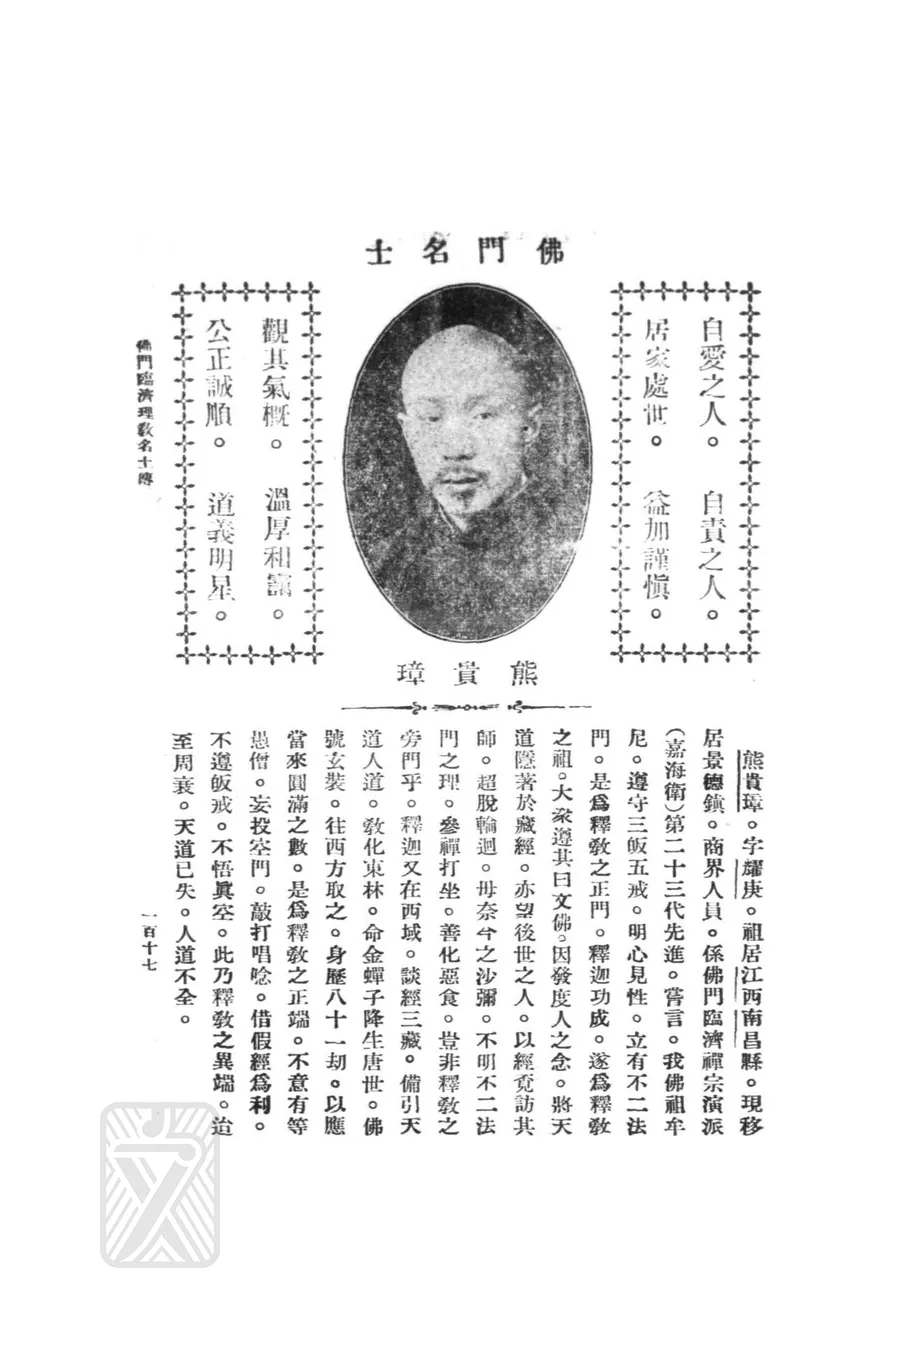 佛門名士
自愛之人。 自責之人。
居家處世。 益加謹慎。
觀其氣概。 溫厚和藹。
公正誠順。 道義明星。
熊貴璋
熊貴璋。字耀庚。祖居江西南昌縣。現移
居景德鎮。商界人員。係佛門臨濟禪宗演派
（嘉海衛）第二十三代先進。嘗言。我佛祖牟
尼。遵守三皈五戒。明心見性。立有不二法
門。是爲釋教之正門。釋迦功成。遂爲釋教
之祖。大衆遵其曰文佛。因發度人之念。將天
道隱著於藏經。亦望後世之人。以經竟訪其
師。超脫輪迴。毋奈今之沙彌。不明不二法
門之理。參禪打坐。善化惡食。豈非釋教之
旁門乎。釋迦又在西域。談經三藏。備引天
道人道。教化東林。命金蟬子降生唐世。佛
號玄裝。往西方取之。身歷八十一劫。以應
當來圓滿之數。是爲釋教之正端。不意有等
愚僧。妄投空門。敲打唱唸。借假經爲利。
不遵皈戒。不悟眞空。此乃釋教之異端。迨
至周衰。天道已失。人道不全。
佛門臨濟理教名士傳
一百十七